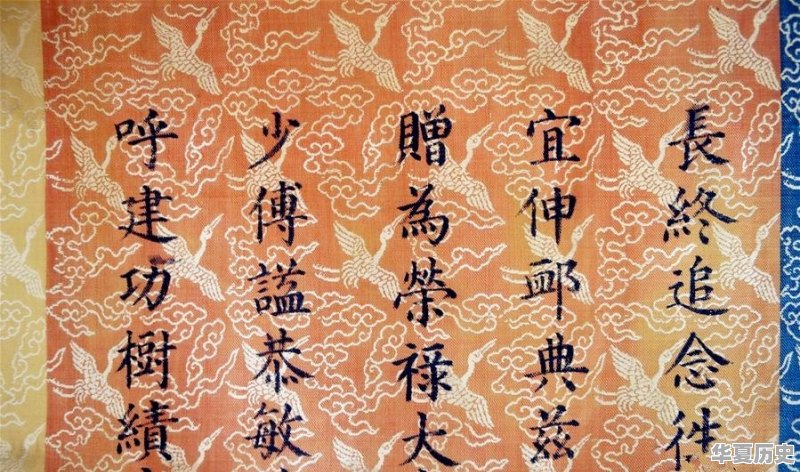 長終追念徃
宜伸卹典茲
贈為榮祿大
少傅謚恭敏
呼建功樹績
华夏历史